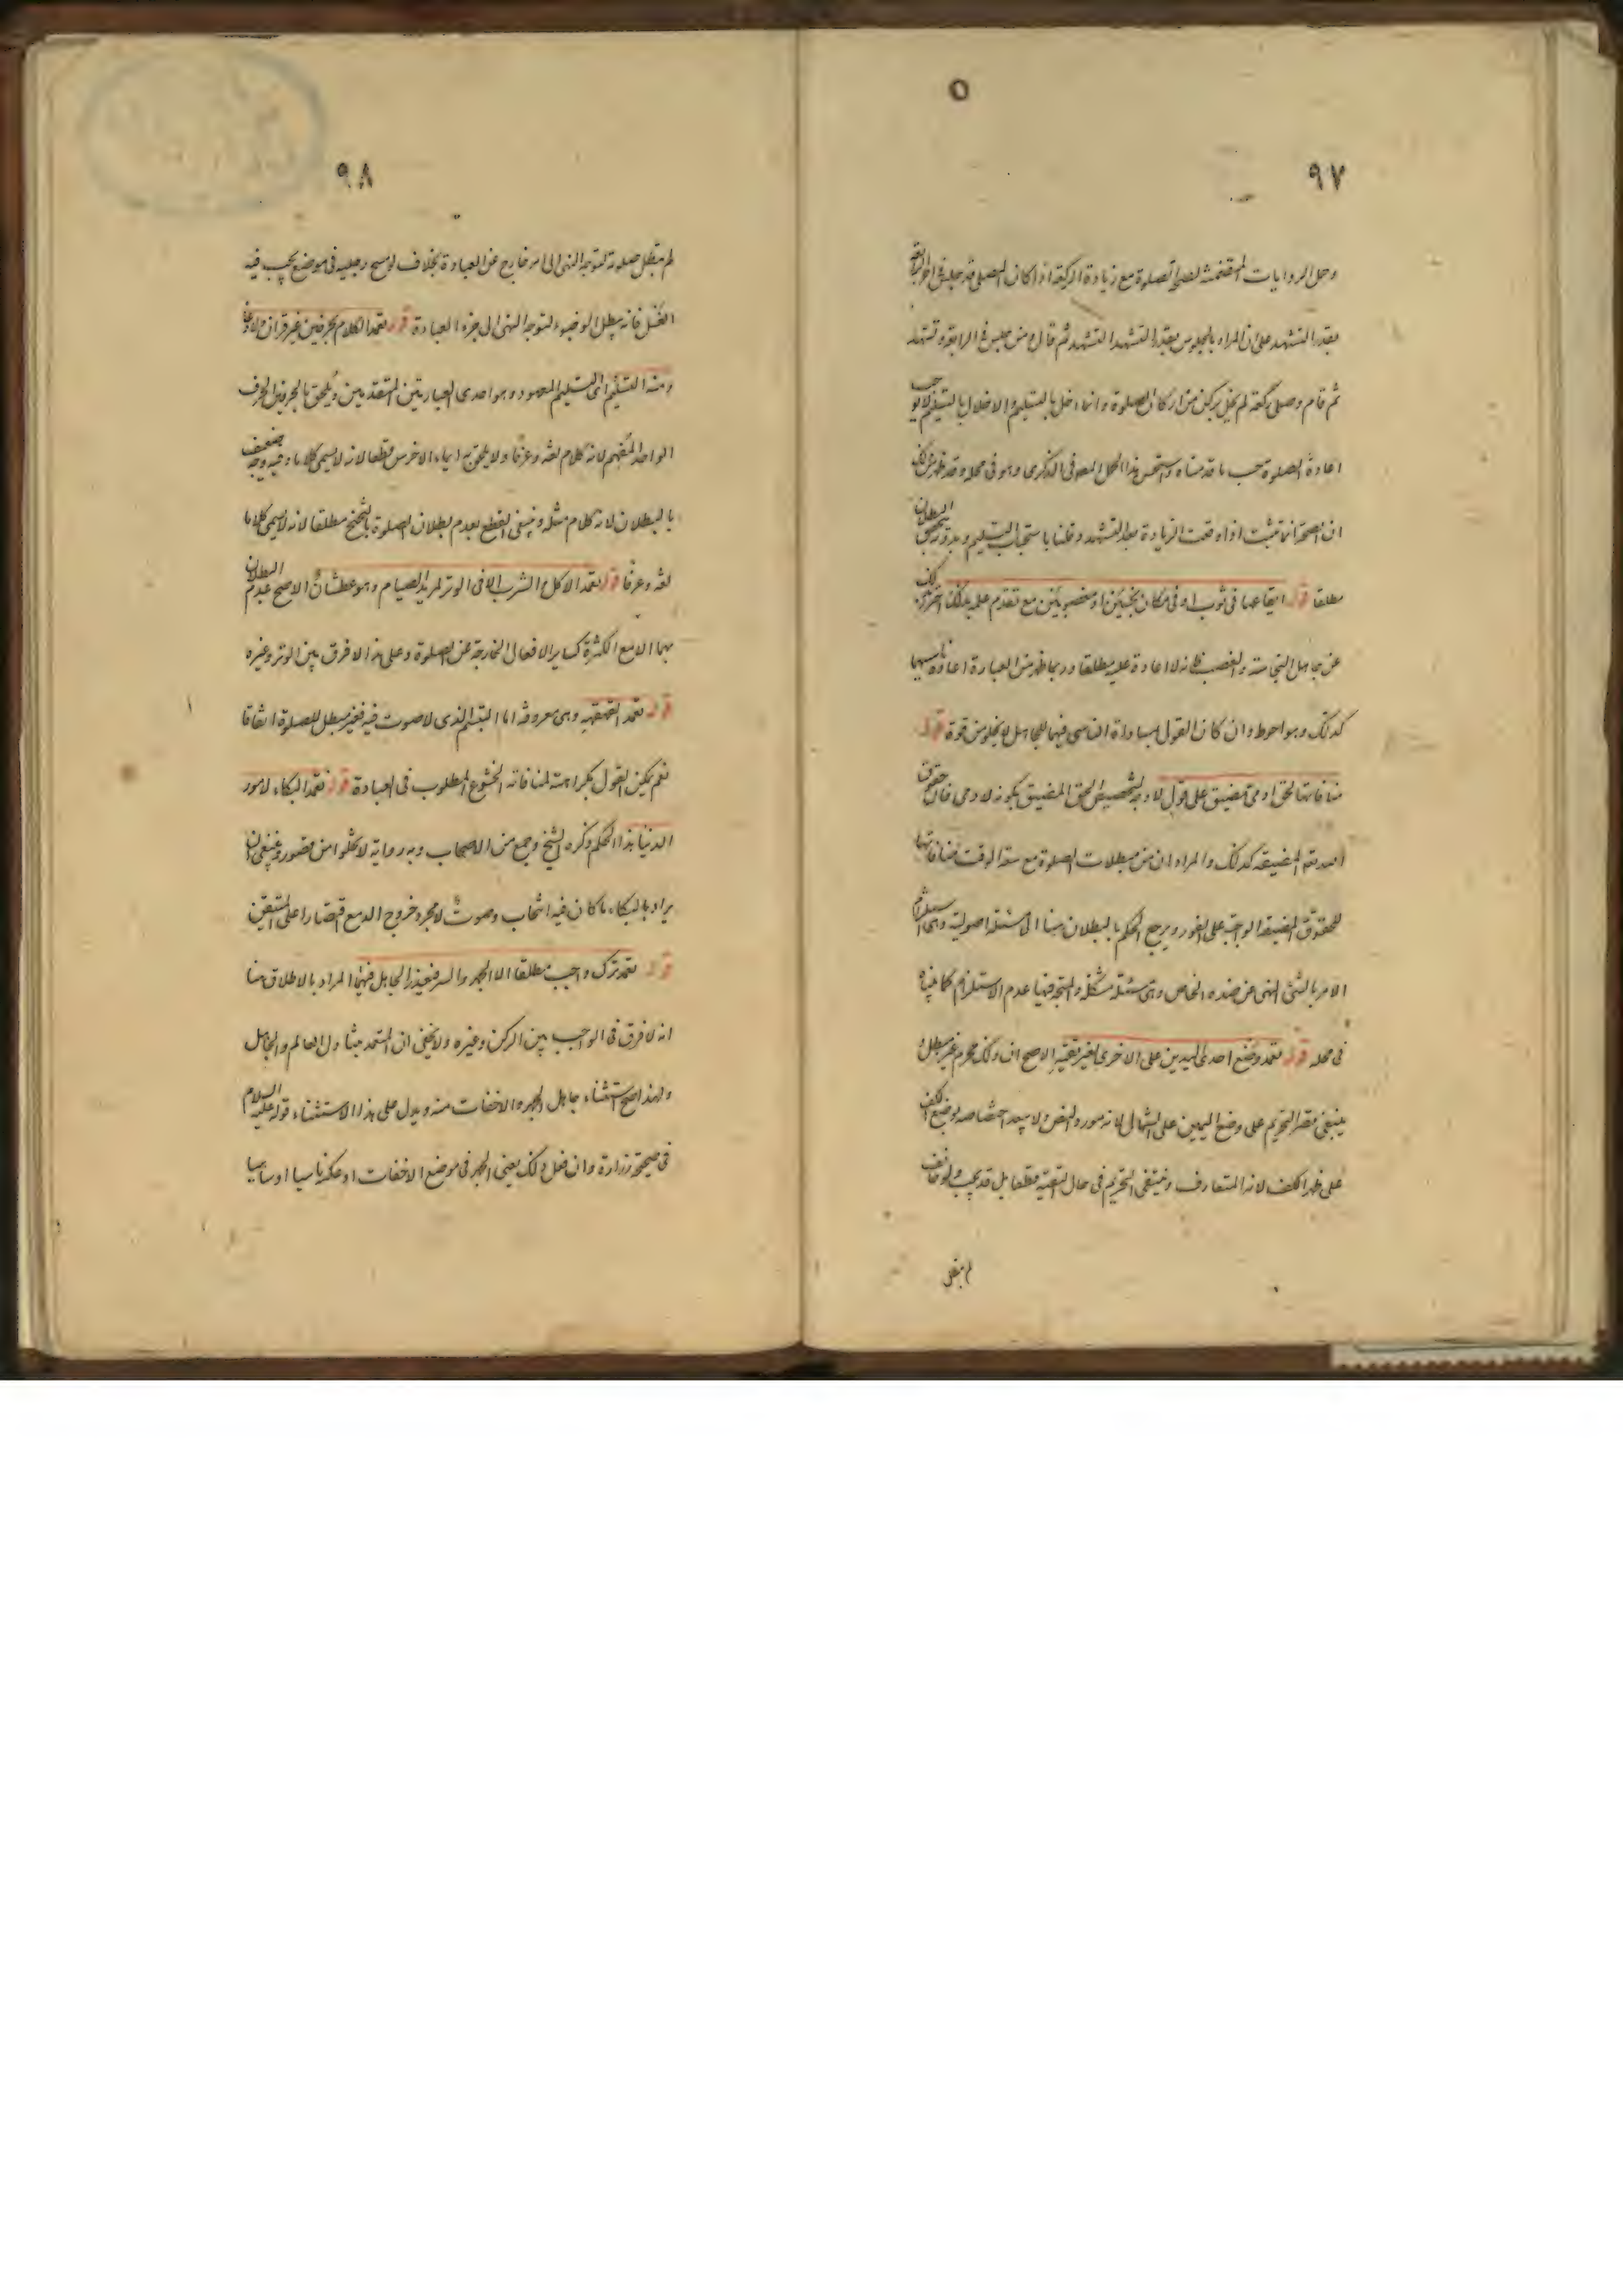 ٩٧
وحمل الروايات المتضمنة لصحة الصلوة مع زيادة الركعة اذا كان المصلي قد جلس في اخر الرابعة
بقدر التشهد على ان المراد بالجلوس بقدر التشهد التشهد ثم قال من جلس في الرابعة وتشهد
ثم قام وصلى ركعة لم يخل بركن من اركان الصلوة وانما اخل بالتسليم والاخلال بالتسليم لا يوجب
اعادة الصلوة حسب ما قدمناه واستحسن هذا الحمل المص في الذكرى وهو في محله وقد ظهر من ذلك
ان الصحة انما تثبت اذا وقعت الزيادة بعد التشهد وقلنا باستحباب التسليم وبدونه يتجه البطلان
مطلقا قوله ايقاعها في ثوب او في مكان نجسين او مغصوبين مع تقدم علمه بذلك احترز بذلك
عن جاهل النجاسة والغصب فانه لا اعادة عليه مطلقا وربما ظهر من العبارة اعادة ناسيهما
كذلك وهو احوط وان كان القول بمساواة الناسي فيهما للجاهل لا يخلو من قوة قوله
منافاتها لحق ادمي مضيق على قول لا وجه لتخصيص الحق المضيق بكونه لادمي فان حقوق
الله تعالى المضيقة كذلك والمراد ان من مبطلات الصلوة مع سعة الوقت منافاتها
للحقوق المضيقة الواجبة على الفور ومرجع الحكم بالبطلان هنا الى مسئلة اصولية وهي استلزام
الامر بالشئ النهي عن ضده الخاص وهي مسئلة مشكلة والمتجه فيها عدم الاستلزام كما بيناه
في محله قوله تعمد وضع احدى اليدين على الاخرى لغير تقية الاصح ان ذلك محرم غير مبطل و
ينبغي قصر التحريم على وضع اليمين على الشمال لانه مورد النص ولا يبعد اختصاصه بوضع الكف
على ظهر الكف لانه المتعارف وينتفي التحريم في حال التقية قطعا بل قد يجب ولو خالف
٩٨
لم تبطل صلوته لتوجه النهي الى امر خارج عن العبادة بخلاف لو مسح رجليه في موضع يجب فيه
الغسل فانه يبطل الوضوء لتوجه النهي الى جزء العبادة قوله تعمد الكلام بحرفين غير قران ولا دعاء
ومنه التسليم اى التسليم المعهود وهو احدى العبارتين المتقدمتين ويلحق بالحرفين الحرف
الواحد المفهم لانه كلام لغة وعرفا ولا يلحق به ايماء الاخرس قطعا لانه لا يسمى كلاما وفيه وجه ضعيف
بالبطلان لانه كلام مثله وينبغي القطع بعدم بطلان الصلوة بالتنحنح مطلقا لانه لا يسمى كلاما
لغة وعرفا قوله تعمد الاكل والشرب الا في الوتر لمريد الصيام وهو عطشان الاصح عدم البطلان
بهما الا مع الكثرة كساير الافعال الخارجة عن الصلوة وعلى هذا لا فرق بين الوتر وغيره
قوله تعمد القهقهه وهي معروفة اما التبسم الذي لا صوت فيه فغير مبطل للصلوة اتفاقا
نعم يمكن القول بكراهته لمنافاته الخشوع المطلوب في العبادة قوله تعمد البكاء لامور
الدنيا هذا الحكم ذكره الشيخ وجمع من الاصحاب وبه رواية لا تخلوا من قصور وينبغي ان
يراد بالبكاء ما كان فيه انتحاب وصوت لا مجرد خروج الدمع اقتصارا على المتيقن
قوله تعمد ترك واجب مطلقا الا الجهر والسر فيعذر الجاهل فيهما المراد بالاطلاق هنا
انه لا فرق في الواجب بين الركن وغيره ولا يخفى ان المتعمد يتناول العالم والجاهل
ولهذا صح استثناء جاهل الجهر والاخفات منه ويدل على هذا الاستثناء قوله عليه السلام
في صحيحة زرارة وان فعل ذلك يعني الجهر في موضع الاخفات او عكسه ناسيا او ساهيا